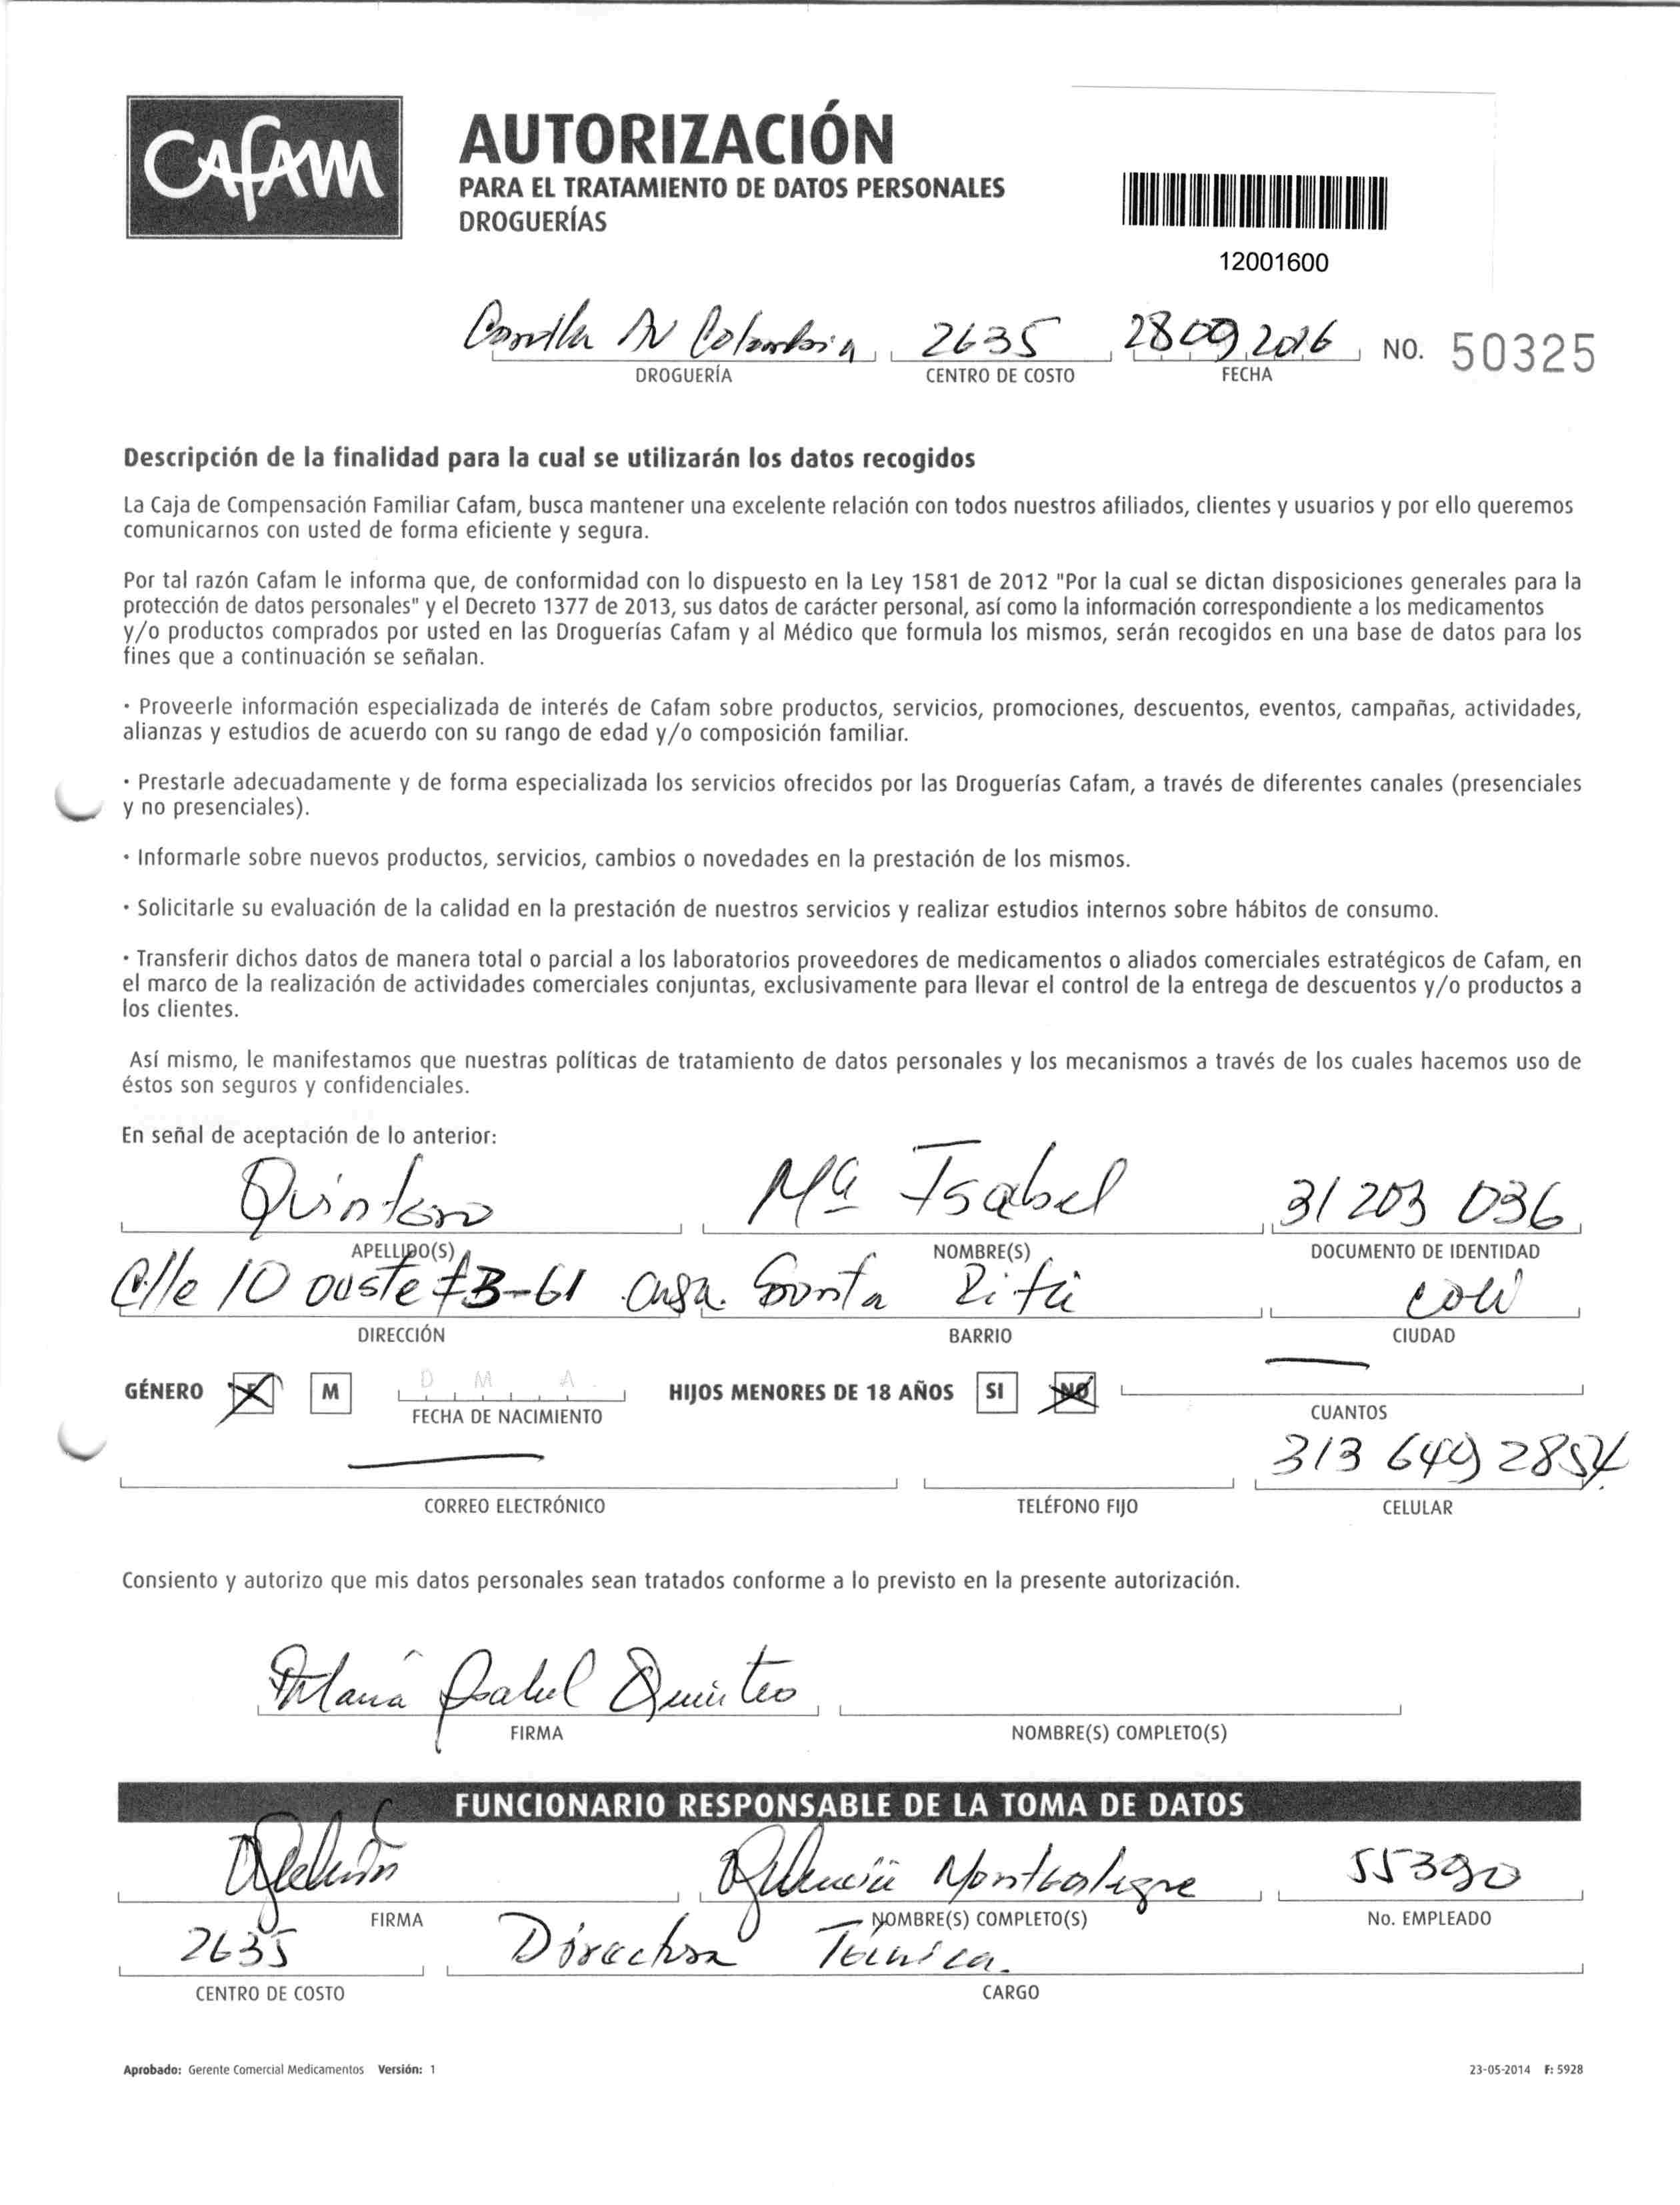 Cafam
AUTORIZACIÓN
PARA EL TRATAMIENTO DE DATOS PERSONALES
DROGUERÍAS
12001600
AV Colombia 2635 28 09 2016 NO. 50325
DROGUERÍA CENTRO DE COSTO FECHA
Descripción de la finalidad para la cual se utilizarán los datos recogidos
La Caja de Compensación Familiar Cafam, busca mantener una excelente relación con todos nuestros afiliados, clientes y usuarios y por ello queremos
comunicarnos con usted de forma eficiente y segura.
Por tal razón Cafam le informa que, de conformidad con lo dispuesto en la Ley 1581 de 2012 "Por la cual se dictan disposiciones generales para la
protección de datos personales" y el Decreto 1377 de 2013, sus datos de carácter personal, así como la información correspondiente a los medicamentos
y/o productos comprados por usted en las Droguerías Cafam y al Médico que formula los mismos, serán recogidos en una base de datos para los
fines que a continuación se señalan.
· Proveerle información especializada de interés de Cafam sobre productos, servicios, promociones, descuentos, eventos, campañas, actividades,
alianzas y estudios de acuerdo con su rango de edad y/o composición familiar.
· Prestarle adecuadamente y de forma especializada los servicios ofrecidos por las Droguerías Cafam, a través de diferentes canales (presenciales
y no presenciales).
· Informarle sobre nuevos productos, servicios, cambios o novedades en la prestación de los mismos.
· Solicitarle su evaluación de la calidad en la prestación de nuestros servicios y realizar estudios internos sobre hábitos de consumo.
· Transferir dichos datos de manera total o parcial a los laboratorios proveedores de medicamentos o aliados comerciales estratégicos de Cafam, en
el marco de la realización de actividades comerciales conjuntas, exclusivamente para llevar el control de la entrega de descuentos y/o productos a
los clientes.
Así mismo, le manifestamos que nuestras políticas de tratamiento de datos personales y los mecanismos a través de los cuales hacemos uso de
éstos son seguros y confidenciales.
En señal de aceptación de lo anterior:
Quintero Mª Isabel 31 203 036
APELLIDO(S) NOMBRE(S) DOCUMENTO DE IDENTIDAD
Clle 10 oeste #3-61 casa. Santa Rita Cali
DIRECCIÓN BARRIO CIUDAD
GÉNERO F M D M A HIJOS MENORES DE 18 AÑOS SI NO
FECHA DE NACIMIENTO CUANTOS
313 649 2854
CORREO ELECTRÓNICO TELÉFONO FIJO CELULAR
Consiento y autorizo que mis datos personales sean tratados conforme a lo previsto en la presente autorización.
María Isabel Quintero
FIRMA NOMBRE(S) COMPLETO(S)
FUNCIONARIO RESPONSABLE DE LA TOMA DE DATOS
Montealegre 55390
FIRMA NOMBRE(S) COMPLETO(S) No. EMPLEADO
2635 Directora Técnica.
CENTRO DE COSTO CARGO
Aprobado: Gerente Comercial Medicamentos Versión: 1 23-05-2014 F: 5928